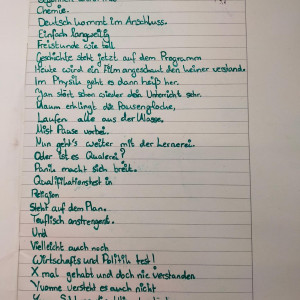 Chemie.
Deutsch kommt im Anschluss.
Einfach langweilig
Freistunde wie toll
Geschichte steht jetzt auf dem Programm
Heute wird ein Film angeschaut den keiner verstand.
Im Physik geht es dann heiß her.
Jan stört schon wieder den Unterricht sehr.
Kaum erklingt die Pausenglocke,
Laufen alle aus der Klasse,
Mist Pause vorbei.
Nun geht's weiter mit der Lernerei.
Oder ist es Quälerei?
Panik macht sich breit.
Qualifikationstest in
Religion
Steht auf dem Plan.
Teuflisch anstrengend.
Und
Vielleicht auch noch
Wirtschafts und Politik test!
X mal gehabt und doch nie verstanden
Yvonne versteht es auch nicht